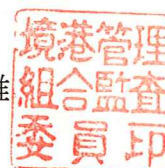 境港管理
組合監査
委員印